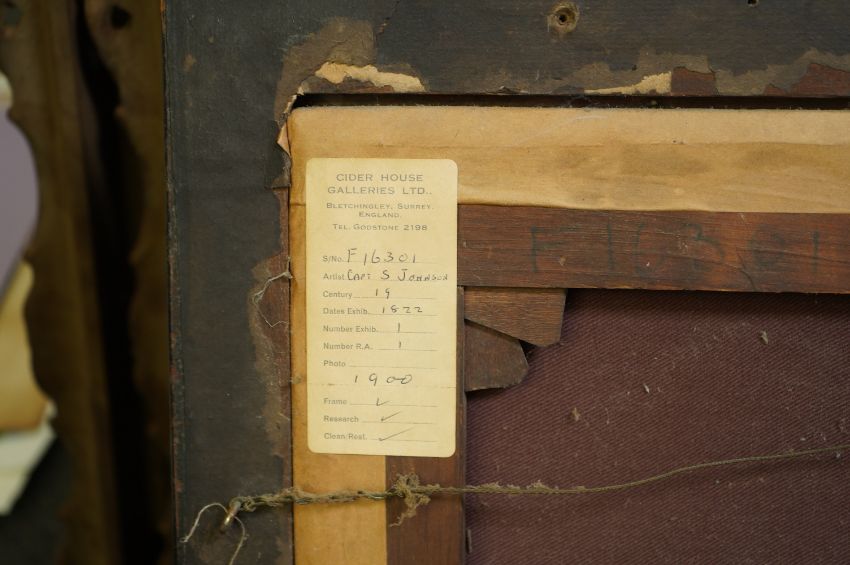 CIDER HOUSE
GALLERIES LTD..
BLETCHINGLEY, SURREY.
ENGLAND.
TEL. GODSTONE 2198
S/No. F16301
Artist CAPT S JOHNSON
Century 19
Dates Exhib. 1822
Number Exhib. 1
Number R.A. 1
Photo
1900
Frame ✓
Research ✓
Clean/Rest. ✓
F16301